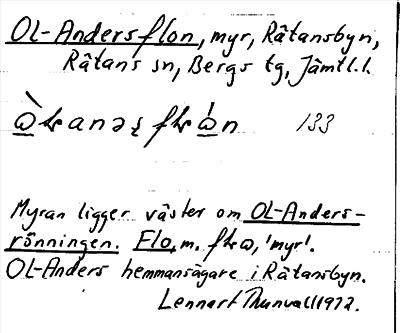 OL-Andersflon, myr, Råtansbyn,
Råtans sn, Bergs tg, Jämtl.l.
133
Myran ligger väster om OL-Anders-
rönningen. Flo, m. 'myr'.
OL-Anders hemmansägare i Råtansbyn.
Lennart Thunvall 1972.